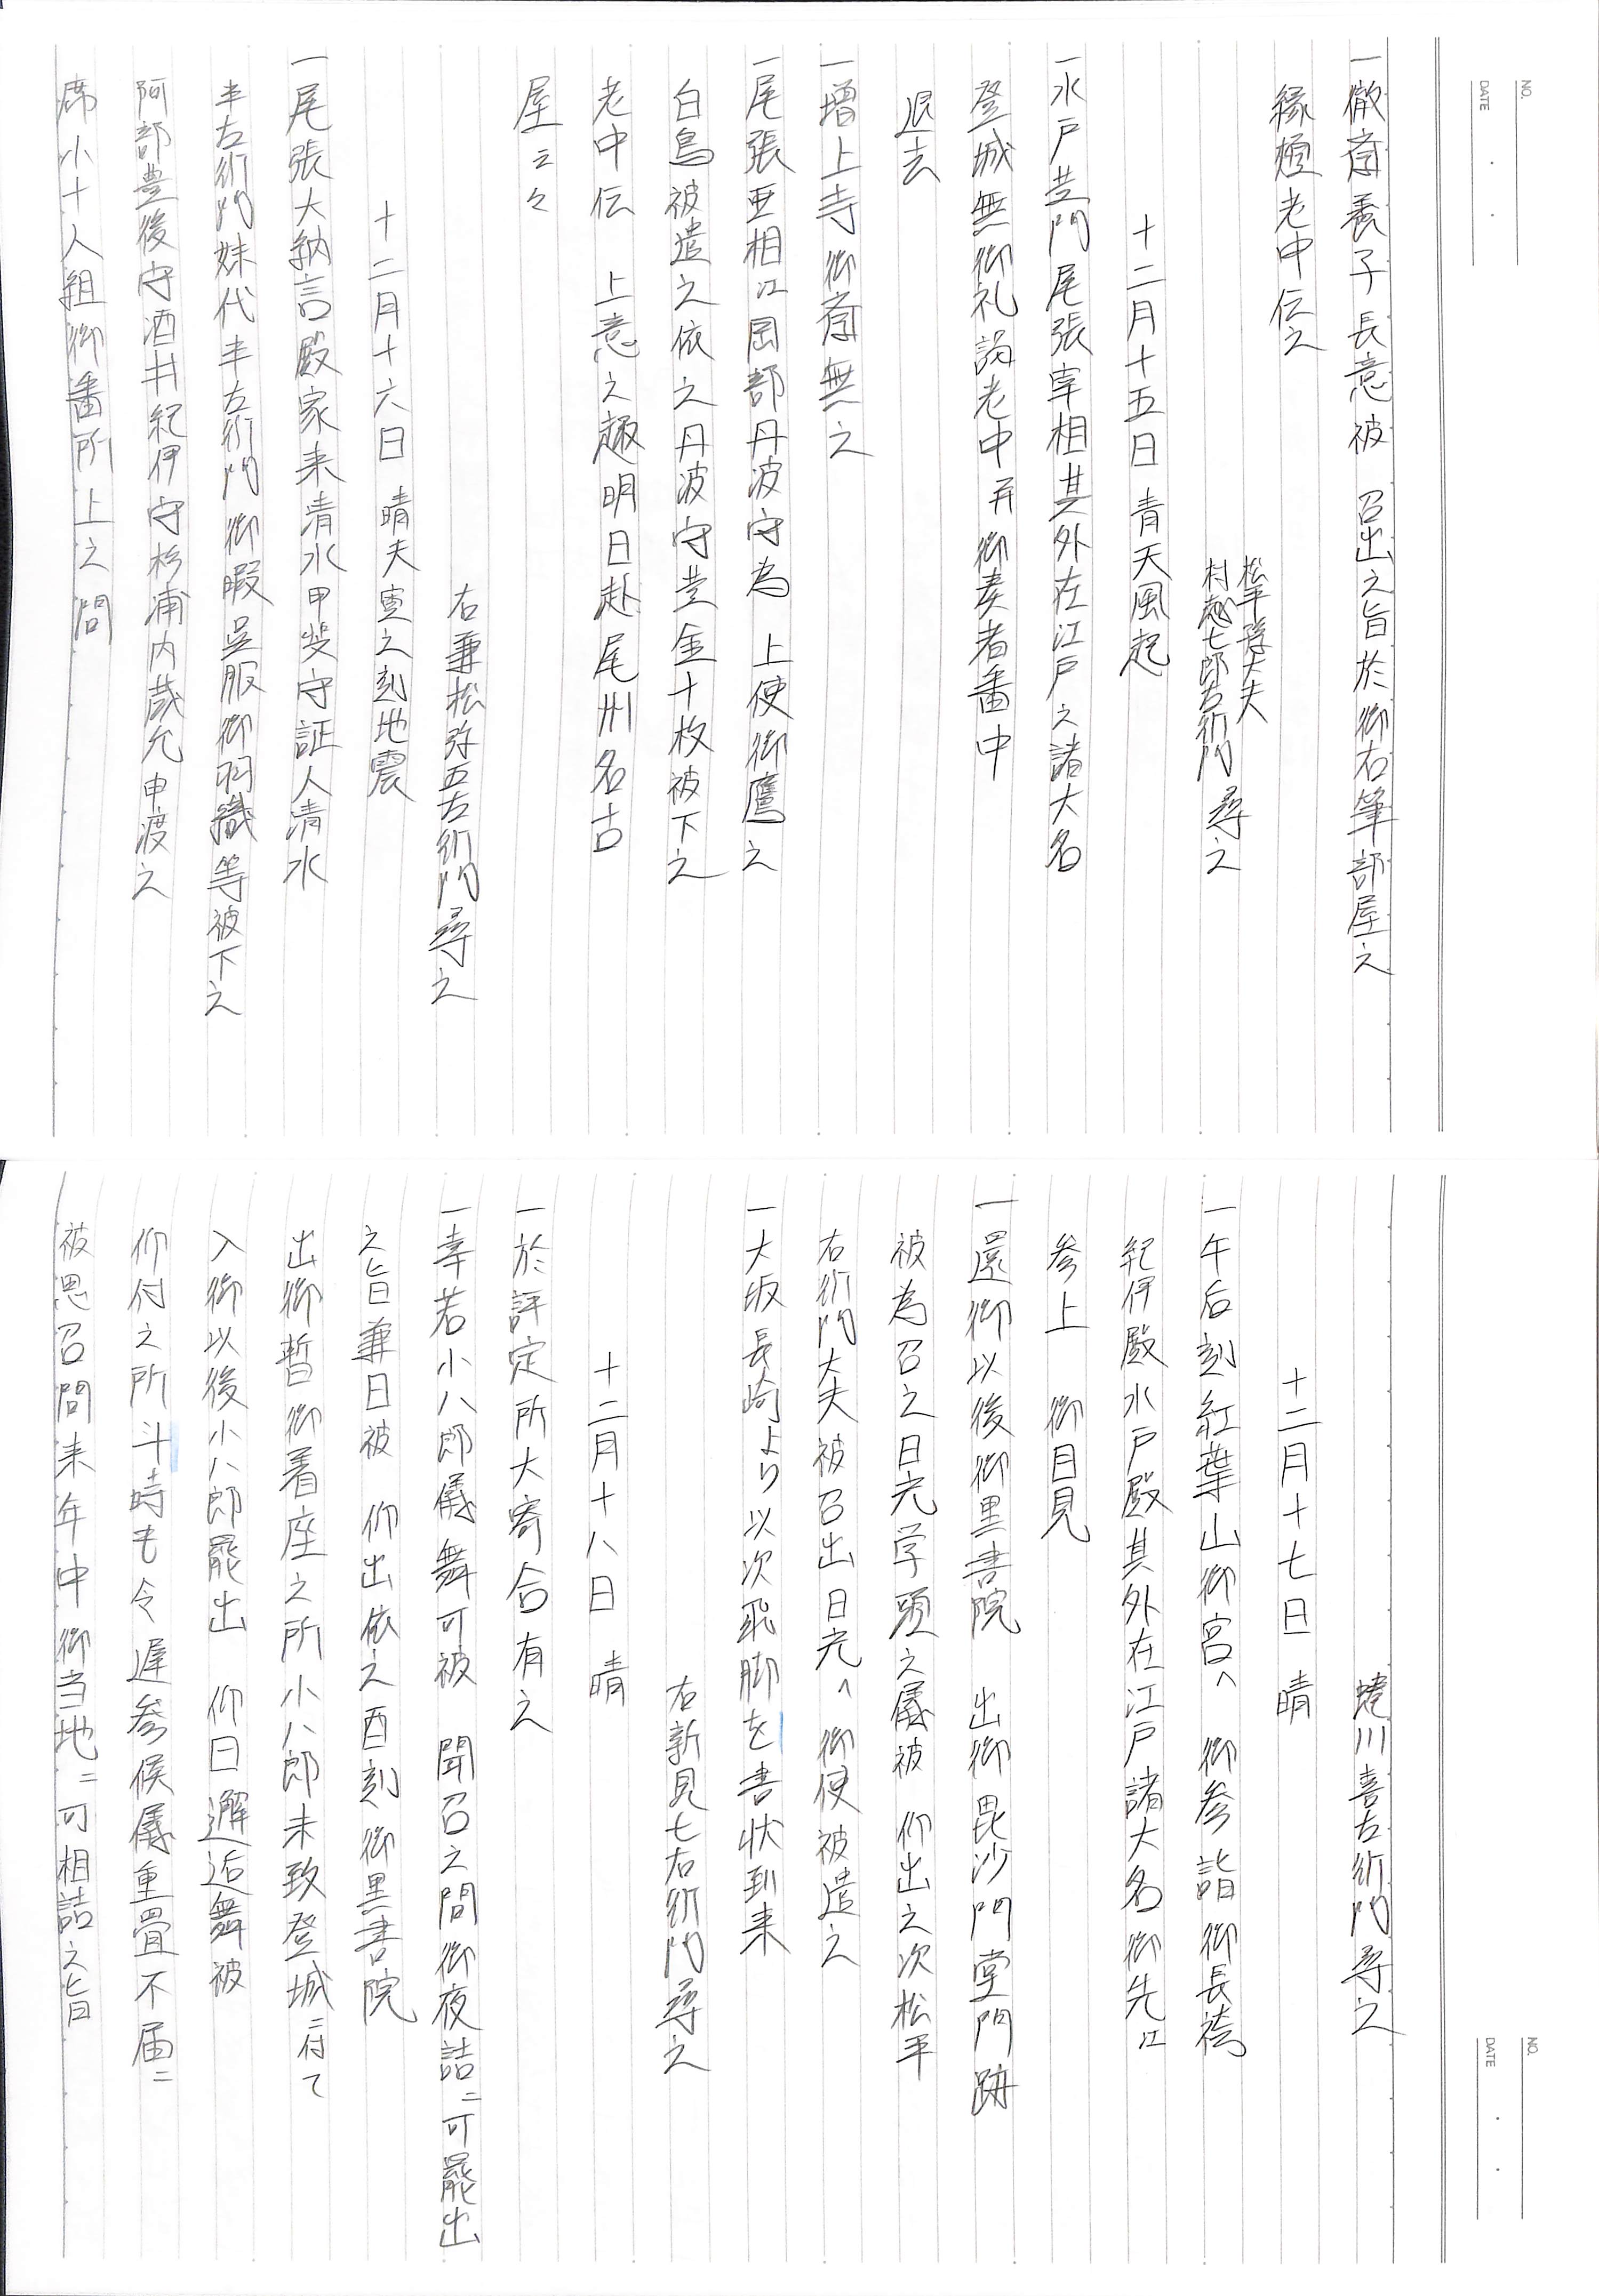 NO.
DATE
一徹斎養子長意被 召出之旨於御右筆部屋之
縁頬老中伝之
松平隼大夫
村越七郎左衛門 尋之
十二月十五日 青天風起
一水戸黄門尾張宰相其外在江戸之諸大名
登城無御礼謁老中并御奏者番中
退去
一増上寺御斎無之
一尾張亜相江岡部丹波守為 上使御鷹之
白鳥被遣之依之丹波守黄金十枚被下之
老中伝 上意之趣明日赴尾州名古
屋云々
右兼松弥五左衛門尋之
十二月十六日 晴夫寅之刻地震
一尾張大納言殿家来清水甲斐守証人清水
半左衛門妹代半左衛門御暇呉服御羽織等被下之
阿部豊後守酒井紀伊守杉浦内蔵允申渡之
席小十人組御番所上之間
NO.
DATE
蜷川喜左衛門尋之
十二月十七日 晴
一午后刻紅葉山御宮へ 御参詣御長袴
紀伊殿水戸殿其外在江戸諸大名御先江
参上 御目見
一還御以後御黒書院 出御毘沙門堂門跡
被為召之日光学頭之儀被 仰出之次松平
右衛門大夫被召出日光へ御使被遣之
一大坂長崎より以次飛脚を書状到来
右新見七右衛門尋之
十二月十八日 晴
一於評定所大寄合有之
一幸若小八郎儀舞可被 聞召之間御夜詰ニ可罷出
之旨兼日被 仰出依之酉刻御黒書院
出御暫御着座之所小八郎未致登城ニ付て
入御以後小八郎罷出 仰曰邂逅舞被
仰付之所斗時も令遅参候儀重畳不届ニ
被思召間来年中御当地ニ可相詰之旨